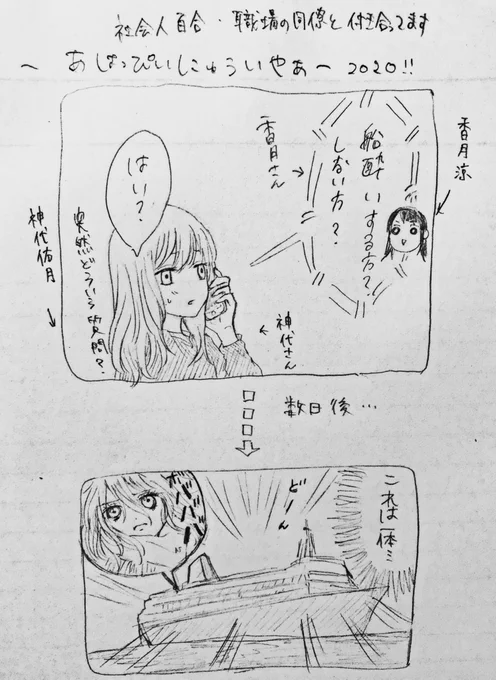 社会人百合・職場の同僚と付き合ってます
～あはっぴいにゅういやあ～2020!!
香月涼
船酔いする方？
しない方？
香月さん
はい？
神代さん
突然どういう質問？
神代佑月
数日後…
これは一体…
どーん